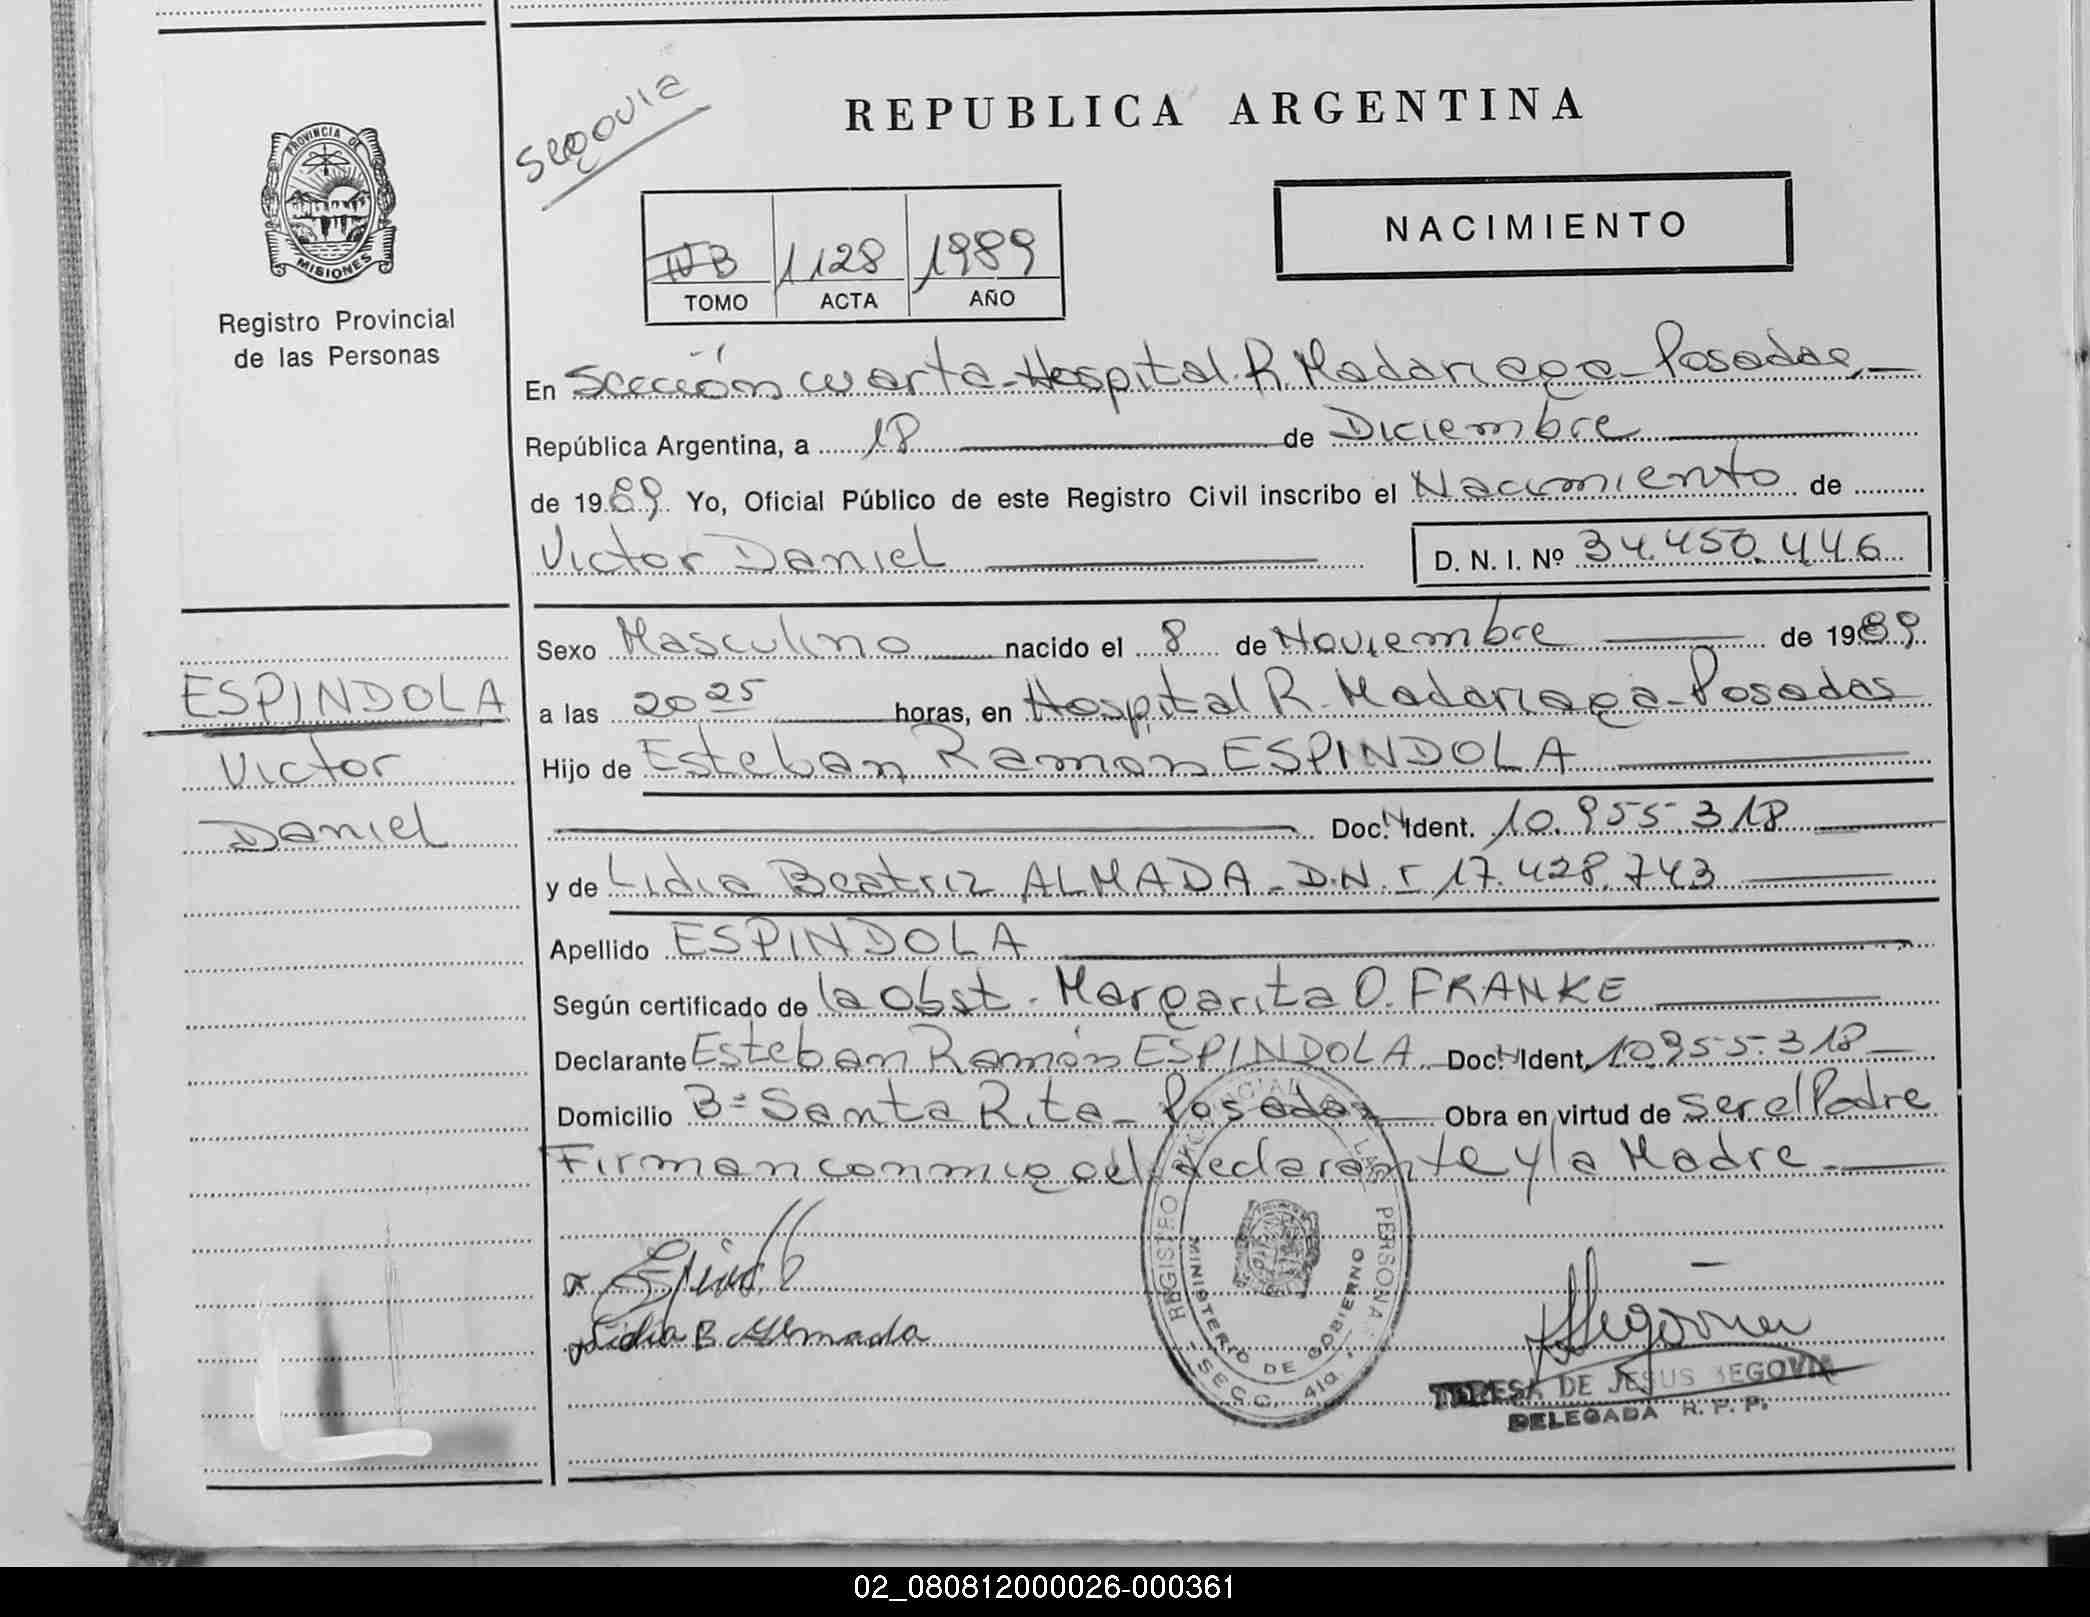 Segovia
REPUBLICA ARGENTINA
PROVINCIA DE
MISIONES
Registro Provincial
de las Personas
IVB 1128 1989
TOMO ACTA AÑO
NACIMIENTO
En Sección cuarta - Hospital R. Madariaga - Posadas,
República Argentina, a 18 de Diciembre
de 1989. Yo, Oficial Público de este Registro Civil inscribo el Nacimiento de
Victor Daniel D. N. I. Nº 34.450.446
Sexo Masculino nacido el 8 de Noviembre de 1989
ESPINDOLA
Victor
Daniel
a las 20 25 horas, en Hospital R. Madariaga - Posadas
Hijo de Esteban Ramon ESPINDOLA
Doc. N Ident. 10.955.318
y de Lidia Beatriz ALMADA - D.N.I 17.428.743
Apellido ESPINDOLA
Según certificado de la obst. Margarita O. FRANKE
Declarante Esteban Ramón ESPINDOLA Doc. N Ident. 10.955.318
Domicilio Bº Santa Rita - Posadas Obra en virtud de ser el Padre
Firman conmigo el declarante y la Madre
REGISTRO PROVINCIAL DE LAS PERSONAS
MINISTERIO DE GOBIERNO
- SECC. 4ta -
Lidia B Almada
Segovia
TERESA DE JESUS SEGOVIA
DELEGADA R. P. P.
02_080812000026-000361